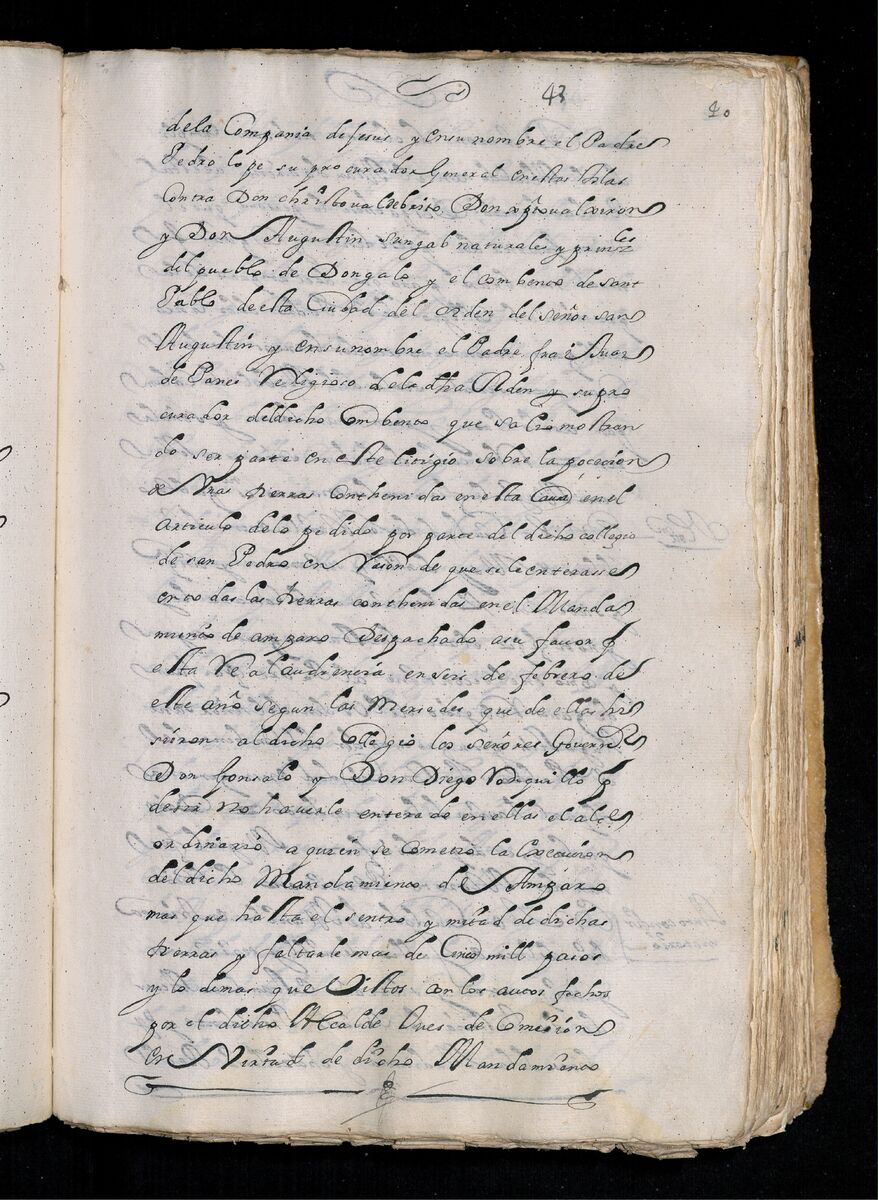 43
40
dela Compania de Jesus y ensu nombre el Padre
Pedro lope su procurador General enestas Islas
Contra Don christoual debrito, Don xptoual xiron
y Don Augustin sungab naturales y prinsles
del pueblo de Dongalo y el combento de sant
Pablo deesta Ciudad del orden del señor san
Augustin y ensunombre el Padre frai Juan
de Panes Religioso dela dha Orden y su pro
curador deldicho Combento que salio mostran
do ser parte en este litigio sobre la poçecion
de Unas tierras Conthenidas enesta Causa en el
articulo delo pedido por parte del dicho collegio
de san Pedro en Rason de que se le enterasse
en to das las tierras conthenidas en el Manda
miento de amparo Despachado asu favor p
esta Real audiencia en seis de febrero de
este año segun las Mersedes que de ellas hi
sieron al dicho Collegio los señores Governes
Don Gonsalo y Don Diego Ronquillo p
desir no haverle enterado en ellas el alce
ordinario a quien se cometio la execucion
del dicho Mandamiento de Amparo
mas que hasta el sentro y mitad de dichas
tierras y faltarle mas de Cinco mill pasos
y lo demas que Vistos con los autos fechos
por el dicho Alcalde Jues de Comision
en Virtud de dicho Mandamiento